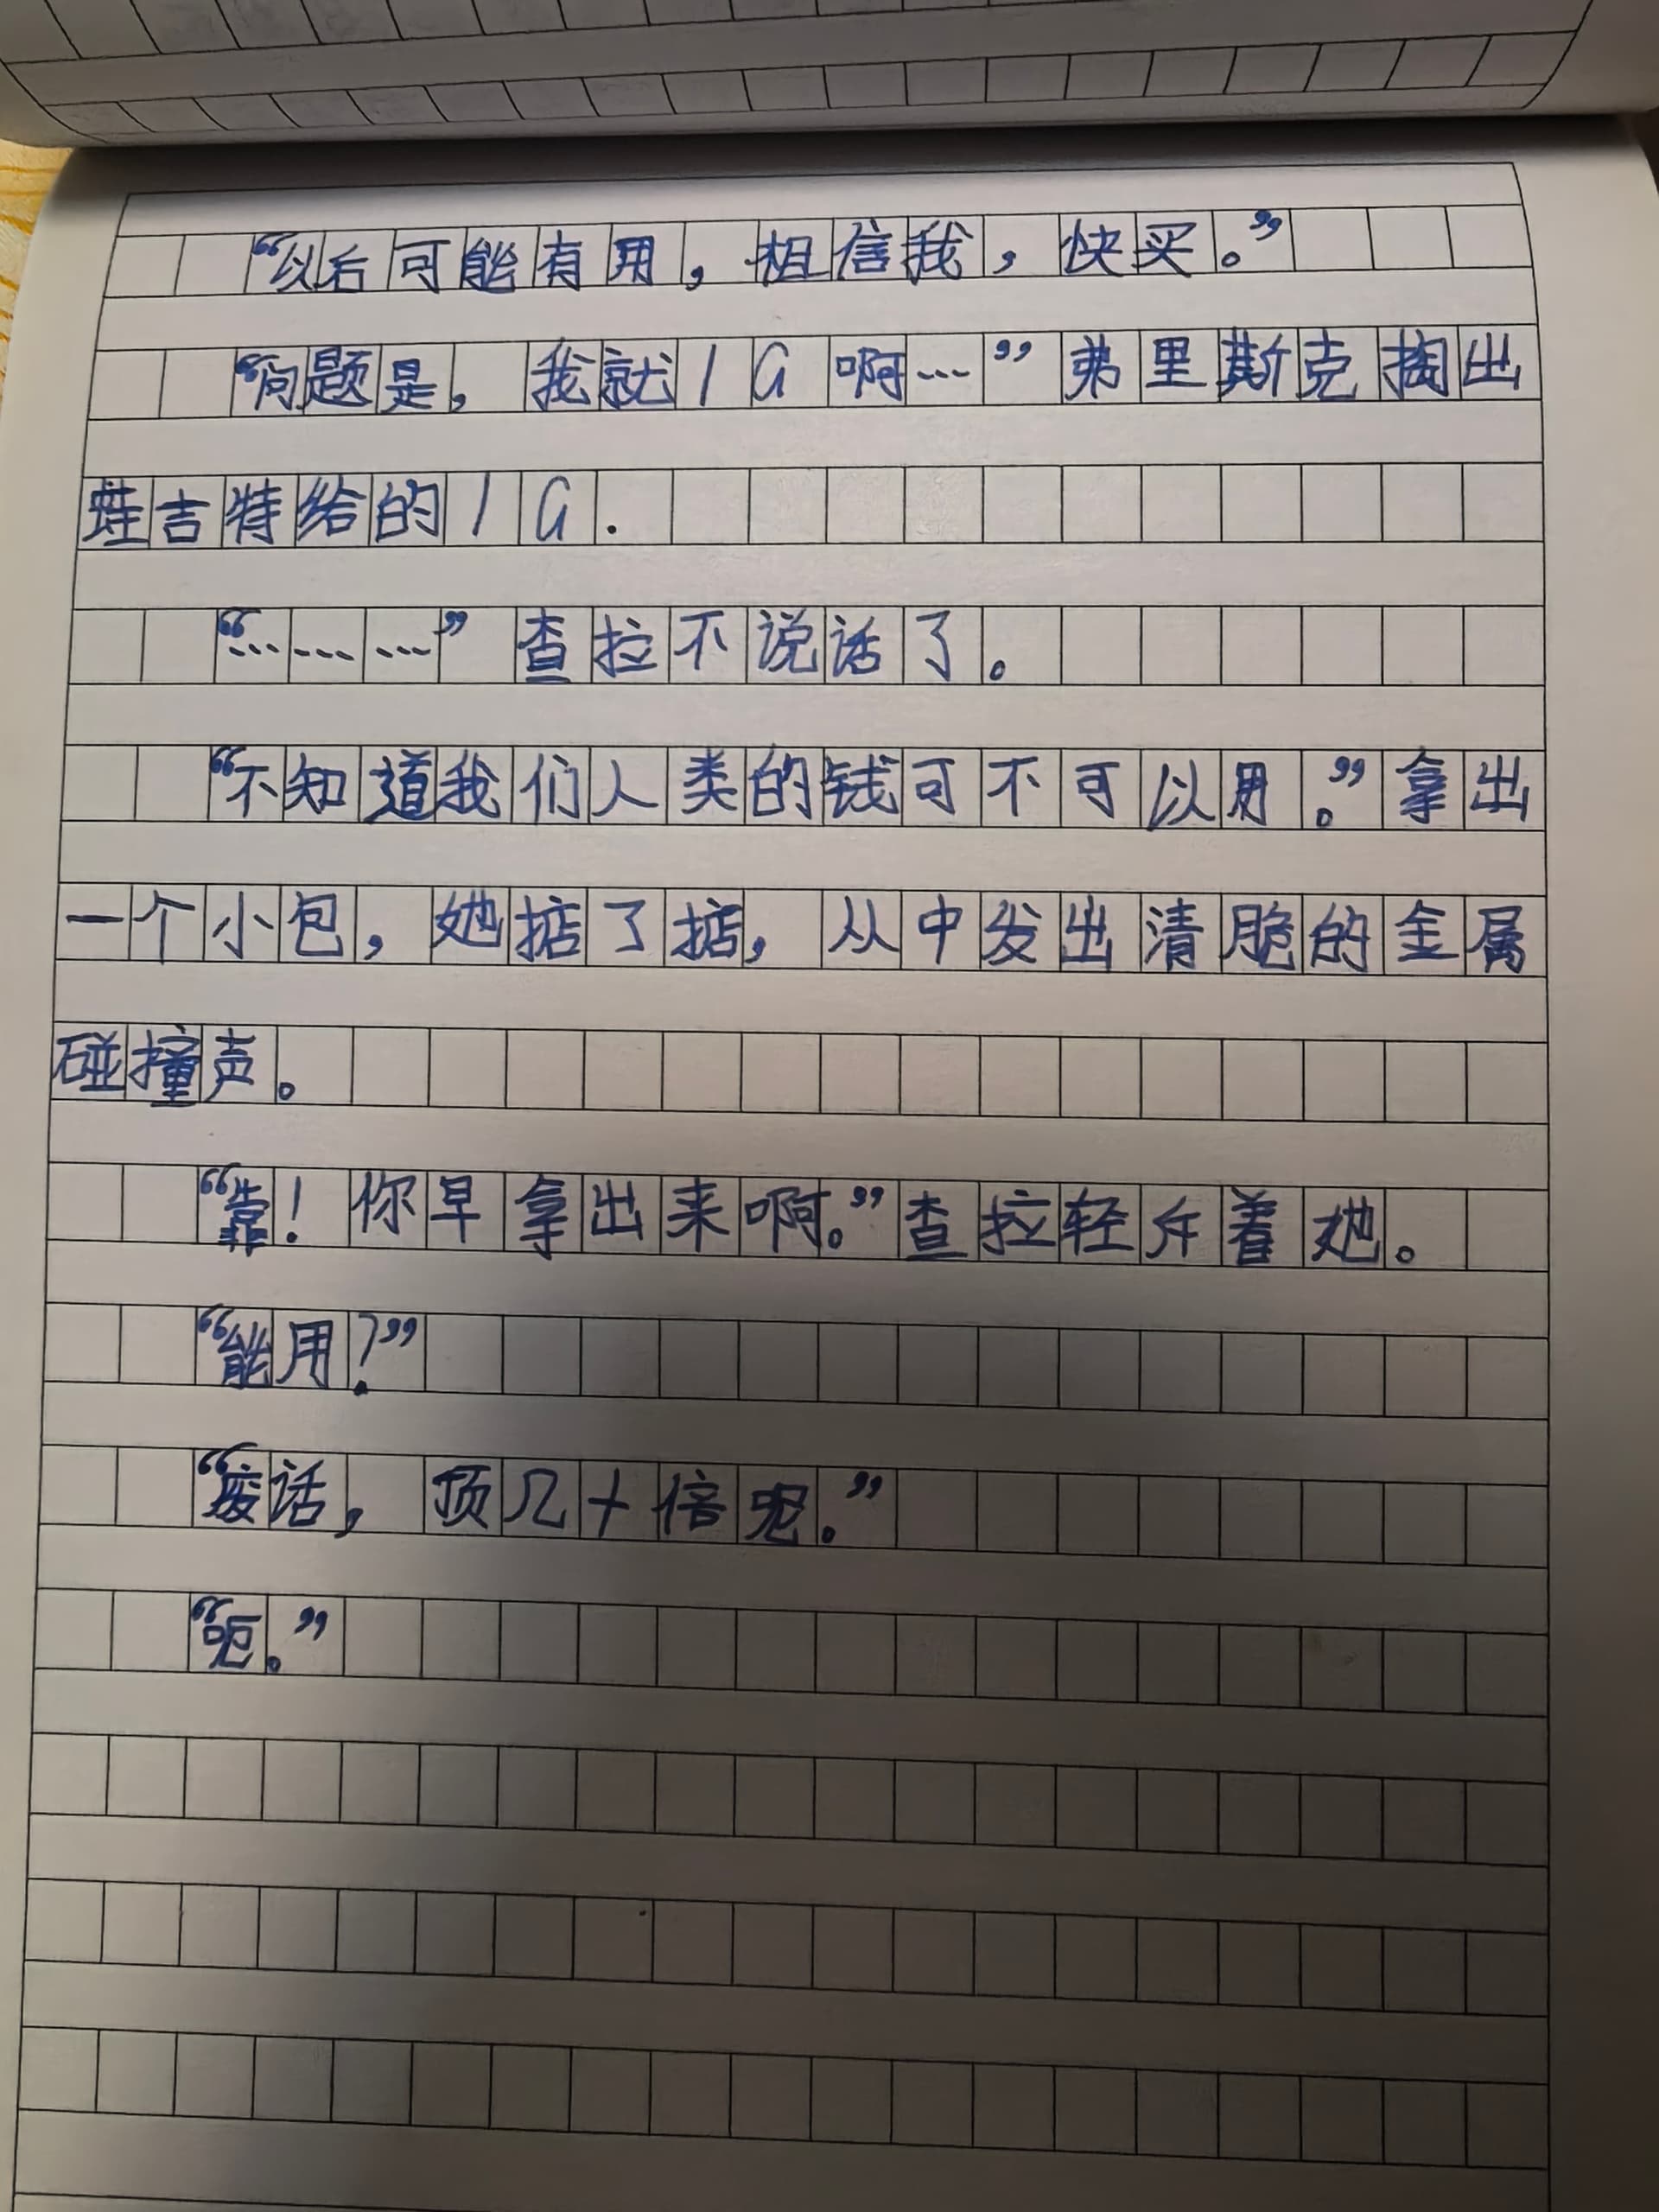 “以后可能有用，相信我，快买。”
“问题是，我就1G啊…”弗里斯克掏出
蛙吉特给的1G.
“………”查拉不说话了。
“不知道我们人类的钱可不可以用。”拿出
一个小包，她掂了掂，从中发出清脆的金属
碰撞声。
“靠！你早拿出来啊。”查拉轻斥着她。
“能用？”
“废话，顶几十倍呢。”
“呃。”